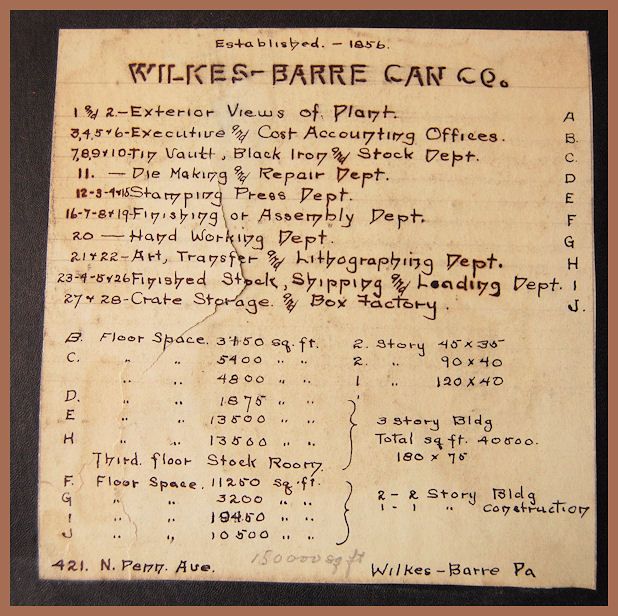 Established. - 1856.
WILKES-BARRE CAN CO.
1 and 2.-Exterior Views of Plant. A
3,4,5 & 6-Executive and Cost Accounting Offices. B.
7,8,9 & 10-Tin Vault, Black Iron and Stock Dept. C.
11. - Die Making and Repair Dept. D
12-3-4 & 15 Stamping Press Dept. E
16-7-8 & 19-Finishing or Assembly Dept. F
20 - Hand Working Dept. G
21 & 22-Art, Transfer and Lithographing Dept. H
23-4-5 & 26 Finished Stock, Shipping and Loading Dept. I
27 & 28-Crate Storage. and Box Factory. J.
B. Floor Space. 3150 sq. ft. 2. Story 45 x 35
C. " " 5400 " " 2. " 90 x 40
" " 4800 " " 1 " 120 x 40
D. " " 1875 " "
E " " 13500 " " 3 Story Bldg
H " " 13500 " " Total sq ft. 40500.
Third floor Stock Room 180 x 75
F. Floor Space. 11250 sq. ft.
G " " 3200 " " 2 - 2 Story Bldg
I " " 19450 " " 1 - 1 " construction
J " " 10500 " "
150000 sq ft
421. N. Penn. Ave. Wilkes-Barre Pa